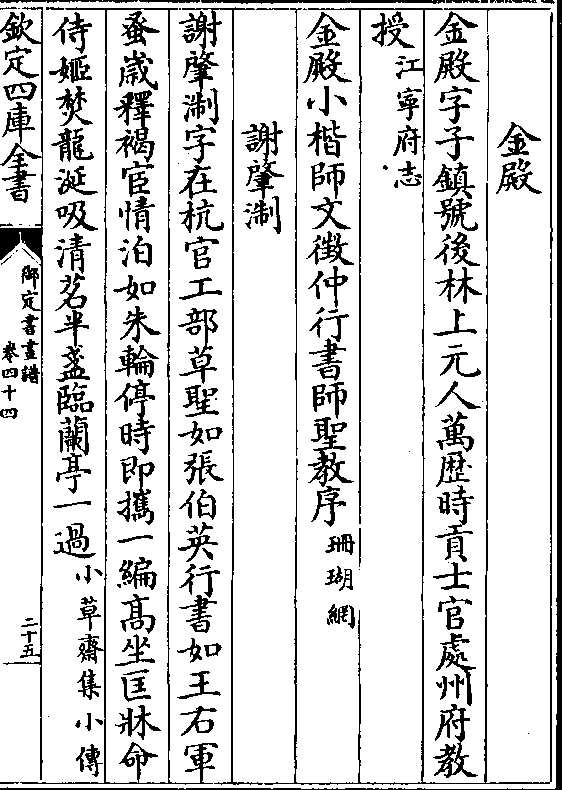 金殿
金殿字子鎮號後林上元人萬歴時貢士官處州府教
授江寧府志
金殿小楷師文徴仲行書師聖教序珊瑚網
謝肇淛
謝肇淛字在杭官工部草聖如張伯英行書如王右軍
蚤歳釋褐宦情泊如朱輪停時即攜一編髙坐匡牀命
侍姬焚龍涎吸清茗半盞臨蘭亭一過小草齋集小傳
欽定四庫全書
御定書畫譜
卷四十四
二十五